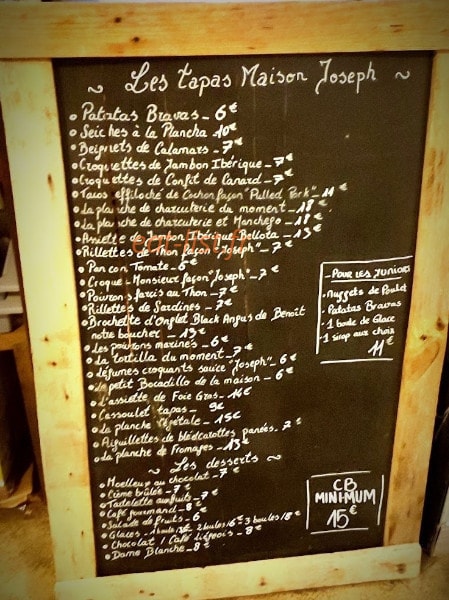 ~ Les tapas Maison Joseph ~
• Patatas Bravas - 6€
• Seiches à la Plancha - 10€
• Beignets de Calamars - 7€
• Croquettes de Jambon Ibérique - 7€
• Croquettes de Confit de Canard - 7€
• Tacos effiloché de Cochon façon "Pulled Pork" 11€
• La planche de charcuterie du moment - 18€
• La planche de charcuterie et Manchego - 18€
• Assiette de Jambon Ibérique Bellota - 15€
• Rillettes de Thon façon "Joseph" - 7€
• Pan con Tomate - 6€
• Croque-Monsieur façon "Joseph" - 7€
• Poivrons farcis au Thon - 7€
• Rillettes de Sardines - 7€
• Brochette d'Onglet Black Angus de Benoît
notre boucher - 15€
• Les poivrons marinés - 6€
• La tortilla du moment - 7€
• Légumes croquants sauce "Joseph" - 6€
• Le petit Bocadillo de la maison - 6€
• L'assiette de Foie Gras - 16€
• Cassoulet tapas - 9€
• La planche végétale - 15€
• Aiguillettes de blé & carottes panées - 7€
• La planche de Fromages - 15€
~ Les desserts ~
• Moelleux au chocolat - 7€
• Crème brûlée - 7€
• Tartelette aux fruits - 7€
• Café gourmand - 8€
• Salade de fruits - 6
• Glaces - 1 boule 3€ 2 boules /6€ - 3 boules /8€
• Chocolat / Café Liégeois - 8€
• Dame Blanche - 8€
- Pour les Juniors
• Nuggets de Poulet
• Patatas Bravas
- 1 boule de Glace
- 1 sirop aux choix
11€
CB
MINIMUM
15€